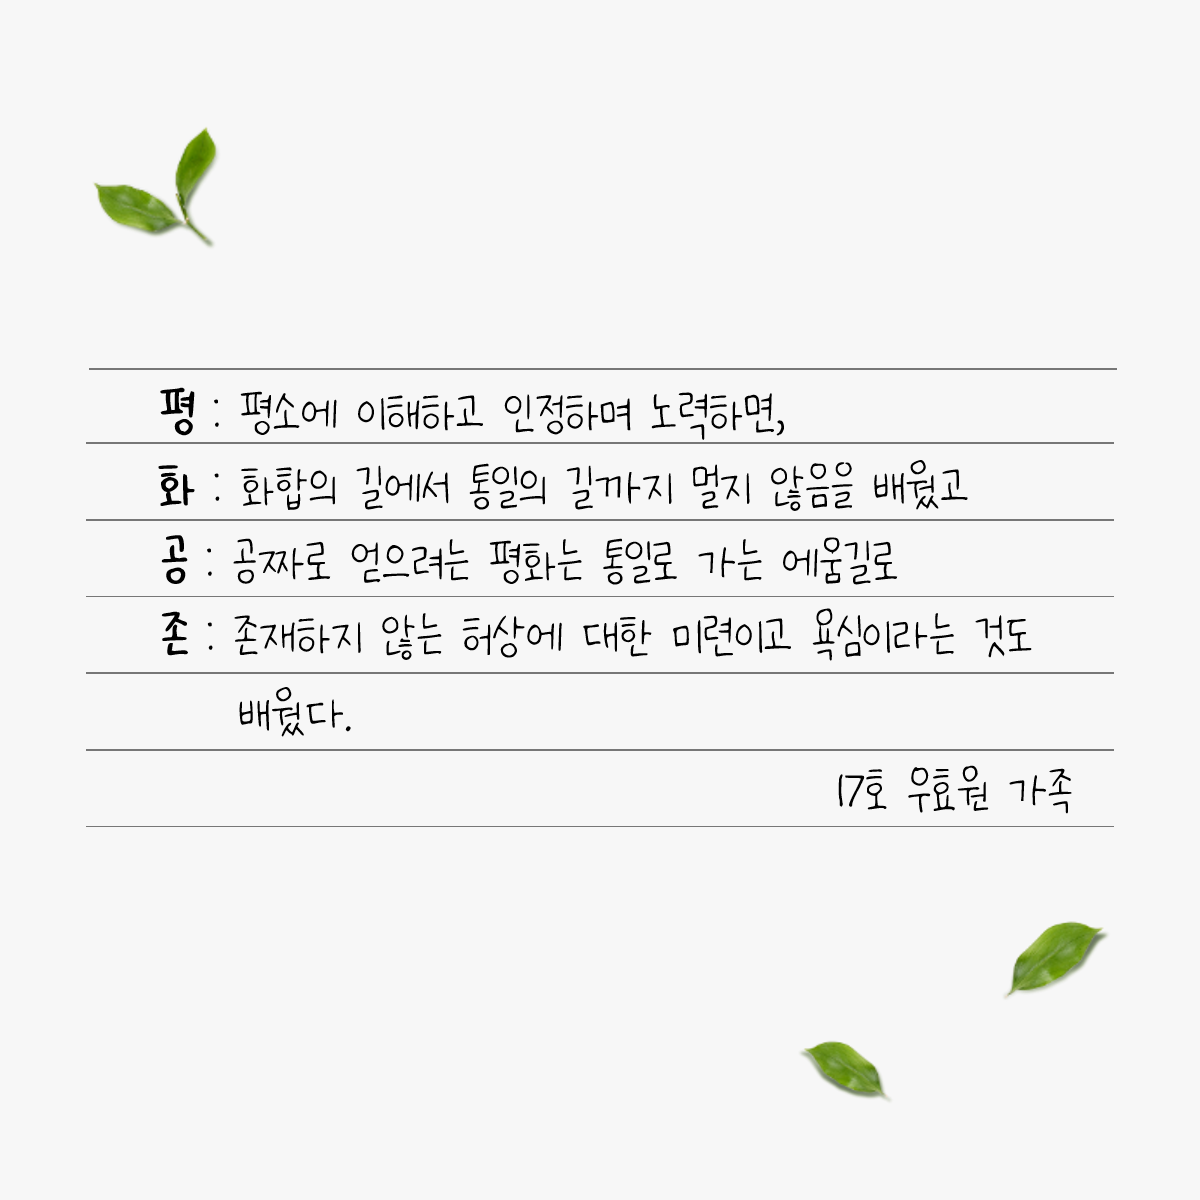 평 : 평소에 이해하고 인정하며 노력하면,
화 : 화합의 길에서 통일의 길까지 멀지 않음을 배웠고
공 : 공짜로 얻으려는 평화는 통일로 가는 에움길로
존 : 존재하지 않는 허상에 대한 미련이고 욕심이라는 것도
배웠다.
17호 우효원 가족